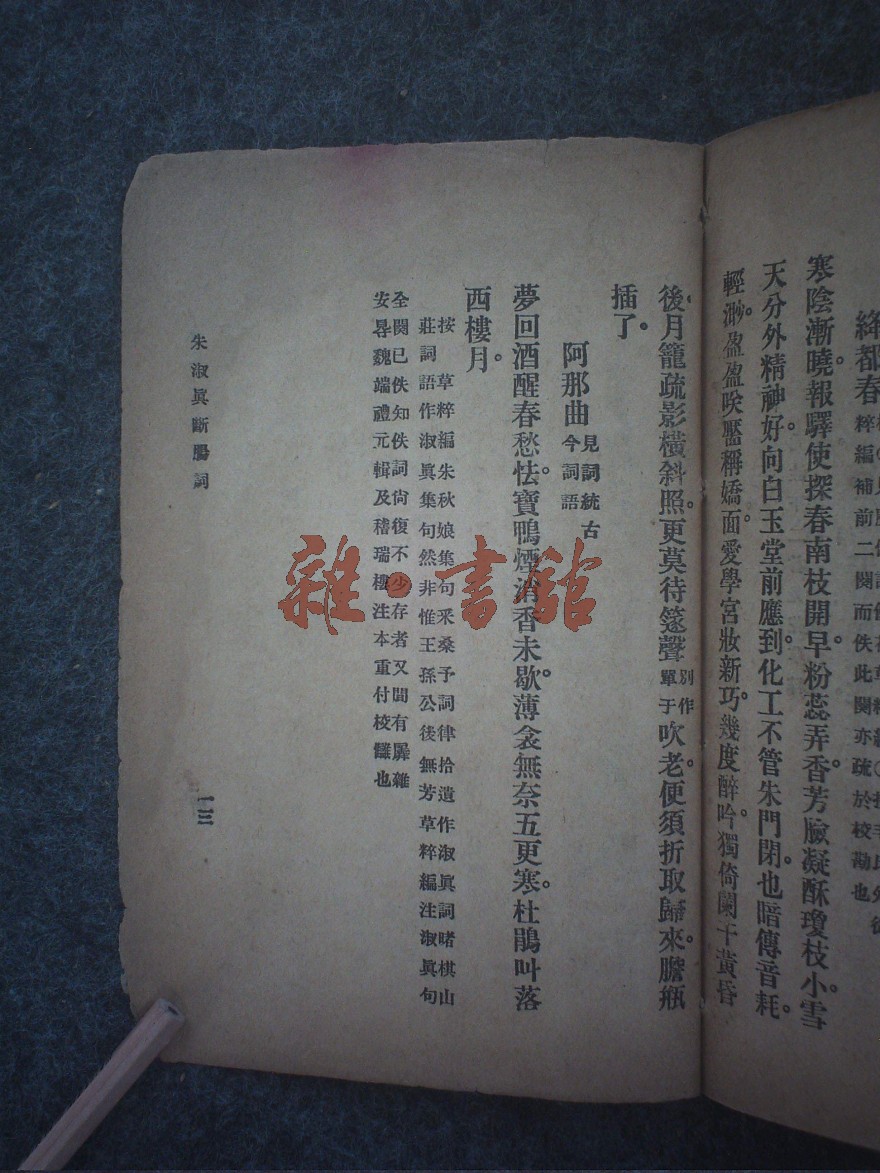 絳都春
粹編補前二闋而佚此闋亦疏於校勘也
寒陰漸曉。報驛使探春南枝開早。粉蕊弄香芳臉凝酥瓊枝小。雪
天分外精神好。向白玉堂前應到。化工不管朱門閉。也暗傳音耗。
輕渺。盈盈咲靨稱嬌面。愛學宮妝新巧。幾度醉吟。獨倚闌干黃昏
後。月籠疏影橫斜照。更莫待篴聲別作單于吹老。便須折取歸來。膽瓶
插了。
阿那曲見詞統古今詞語
夢回酒醒春愁怯。寶鴨煙消香未歇。薄衾無奈五更寒。杜鵑叫落
西樓月。
按草粹編朱秋娘集句釆桑予詞律拾遺作淑眞詞啫棋山
莊詞語作淑眞集句然非惟王孫公後無芳草粹編注淑眞句
全闋已佚知佚詞尙復不少存者又閒有羼雜
安㝵魏端禮元輯及稽瑞樓注本重付校讎也
朱淑眞斷腸詞
一三
雜·書館